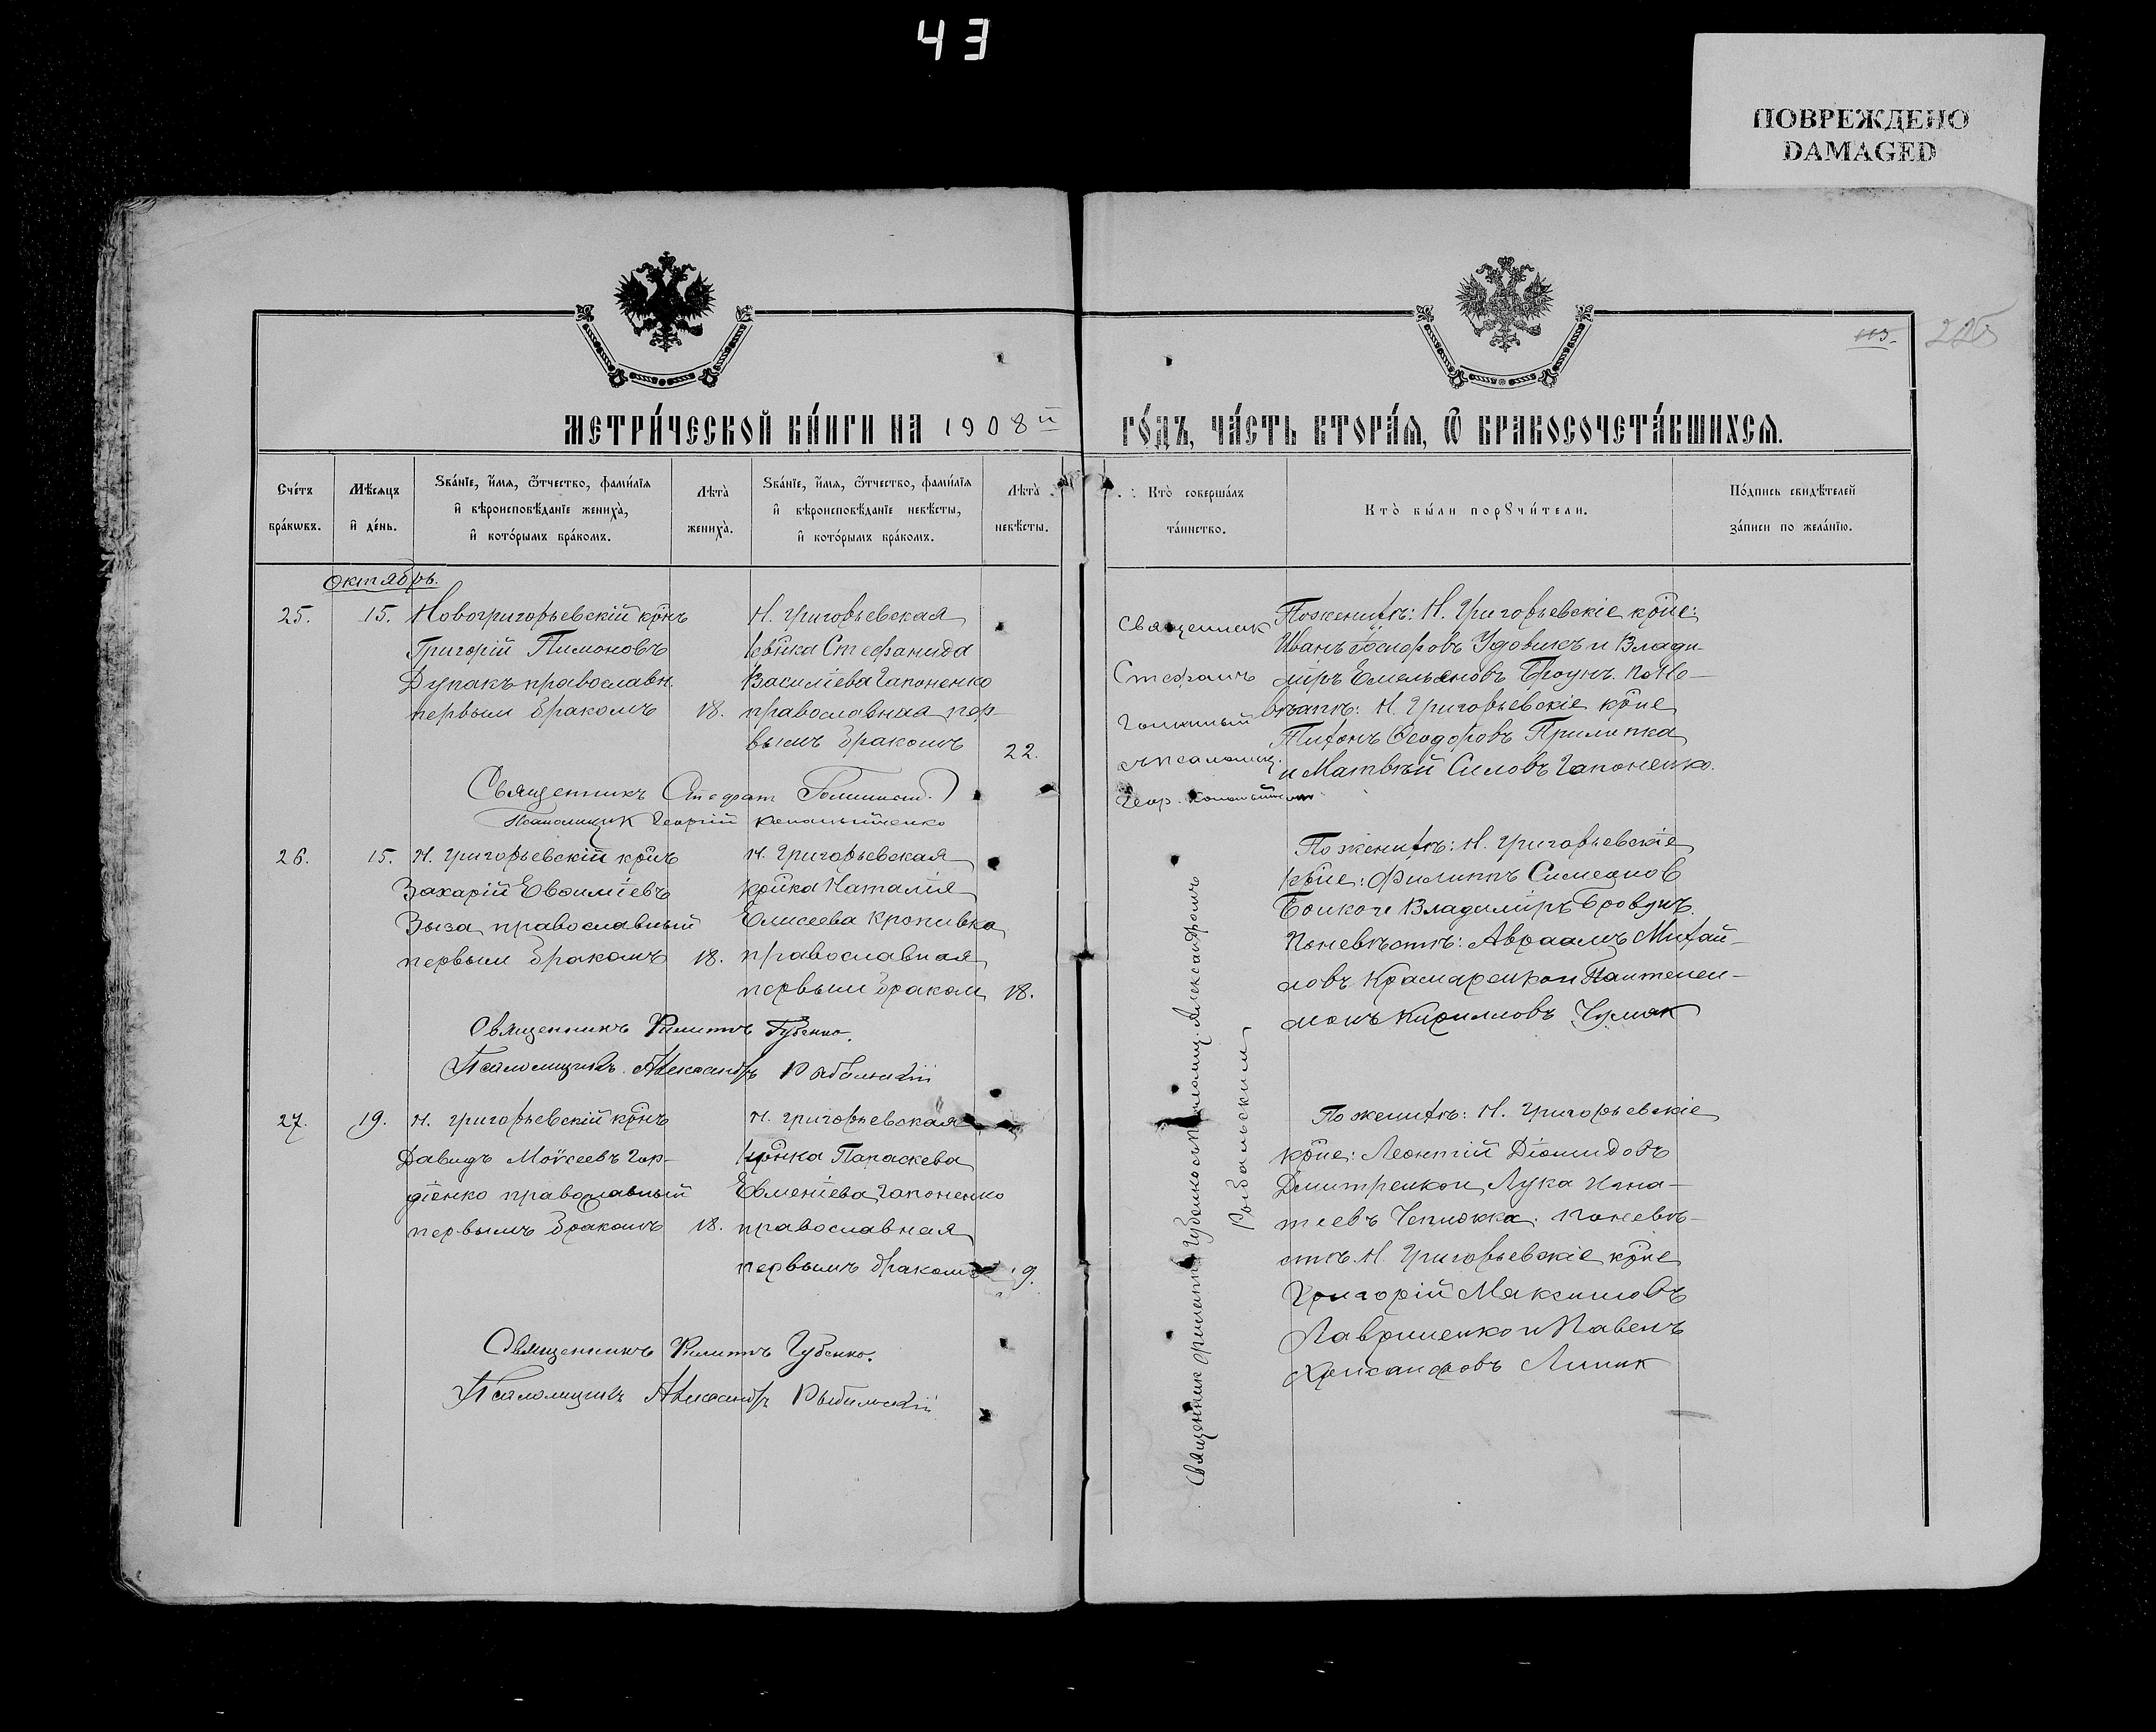 43
ПОВРЕЖДЕНО
DAMAGED
115. 225
МЕТРИ́ЧЕСКОЙ КНИ́ГИ НА 1908й ГО́ДЪ, ЧА́СТЬ ВТОРА́Я, Ѡ БРАКОСОЧЕТА́ВШИХСЯ.
Сче́тъ бра́кѡвъ.
Мѣ́сяцъ и де́нь.
Зва́нїе, и́мя, ѻ́тчество, фами́лїя и вѣроисповѣ́данїе жениха̀, и кото́рымъ бра́комъ.
Лѣта̀ жениха̀.
Зва́нїе, и́мя, ѻ́тчество, фами́лїя и вѣроисповѣ́данїе невѣ́сты, и кото́рымъ бра́комъ.
Лѣта̀ невѣ́сты.
Кто̀ соверша́лъ та́инство.
Кто̀ бы́ли порꙋчи́тели.
По́дпись свидѣ́телей за́писи по жела́нїю.
Октябрь.
25.
15.
Новогригорьевскій кр̃нъ
Григорій Пимоновъ
Дупакъ православн.
первым бракомъ
18.
Н. Григорьевская
кр̃нка Стефанида
Василіева Гапоненко
православная пер-
вымъ бракомъ
22.
Священникъ
Стефанъ
Голинный
псаломщ.
Геор.
Поженихѣ: Н. Григорьевскіе кр̃не:
Иванъ Іосифовъ Удовикъ и Влади-
міръ Емельяновъ Бровунъ. По не-
вѣстѣ: Н. Григорьевскіе кр̃не
Тихонъ Ѳеодоровъ Прилипка
и Матвѣй Силовъ Гапоненко.
Священникъ Стефан
Псаломщик Георгій
26.
15.
Н. Григорьевскій кр̃нъ
Захарій Евѳиміевъ
Зыза православный
первым бракомъ
18.
Н. Григорьевская
кр̃нка Наталія
Елисеева Кропивка
православная
первым браком
18.
По женихѣ: Н. Григорьевскіе
кр̃не: Филиппъ Симеонов
Бойко и Владиміръ Бровунъ.
По невѣстѣ: Авраамъ Михай-
ловъ Крамаренко и Пантелей-
монъ Кирилловъ Чумак
Священникъ Филиппъ Губенко.
Псаломщикъ Александръ Рыбальскій
27.
19.
Н. Григорьевскій кр̃нъ
Давидъ Моѵсеевъ Гор-
діенко православный
первымъ бракомъ
18.
Н. Григорьевская
кр̃нка Параскева
Евменіева Гапоненко
православная
первымъ бракомъ
19.
Священник Филиппъ Губенко съ псаломщ. Александромъ
Рыбальским
По женихѣ: Н. Григорьевскіе
кр̃не: Леонтій Діомидовъ
Дмитренко и Лука Игна-
тіевъ Чепижка: по невѣ-
стѣ. Н. Григорьевскіе кр̃не
Григорій Максимовъ
Лавриненко и Павелъ
Хрисанфовъ Линик
Священникъ Филиппъ Губенко.
Псаломщикъ Александръ Рыбальскій